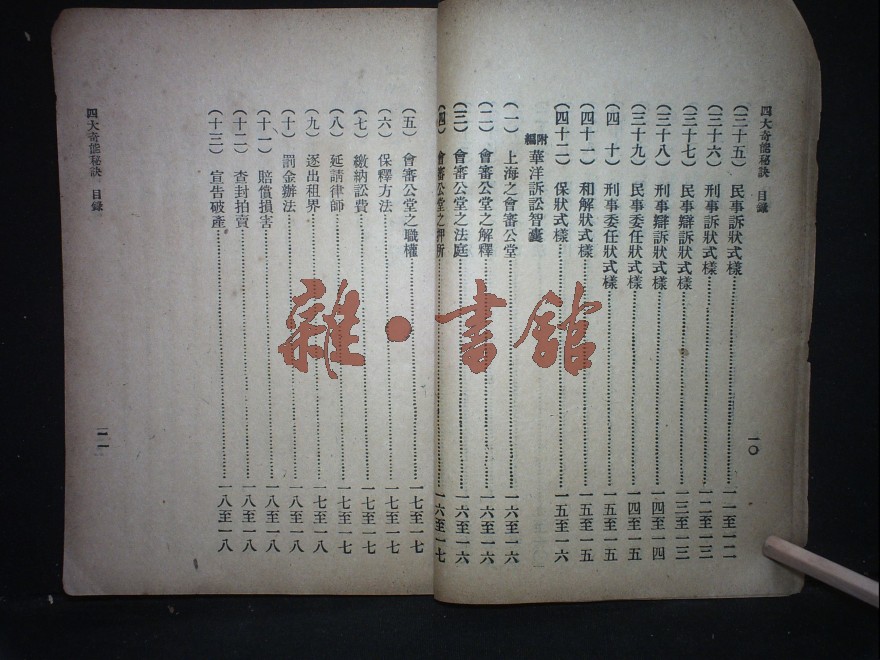 四大奇能秘訣 目錄
(三十五) 民事訴狀式樣……一一至一二
(三十六) 刑事訴狀式樣……一二至一三
(三十七) 民事辯訴狀式樣……一三至一三
(三十八) 刑事辯訴狀式樣……一四至一四
(三十九) 民事委任狀式樣……一四至一五
(四十) 刑事委任狀式樣……一五至一五
(四十一) 和解狀式樣……一五至一五
(四十二) 保狀式樣……一五至一六
附編 華洋訴訟智囊
(一) 上海之會審公堂……一六至一六
(二) 會審公堂之解釋……一六至一六
(三) 會審公堂之法庭……一六至一六
(四) 會審公堂之押所……一六至一七
一〇
(五) 會審公堂之職權……一七至一七
(六) 保釋方法……一七至一七
(七) 繳納訟費……一七至一七
(八) 延請律師……一七至一七
(九) 逐出租界……一七至一八
(十) 罰金辦法……一八至一八
(十一) 賠償損害……一八至一八
(十二) 查封拍賣……一八至一八
(十三) 宣告破產……一八至一八
四大奇能秘訣 目錄
一一
雜·書館